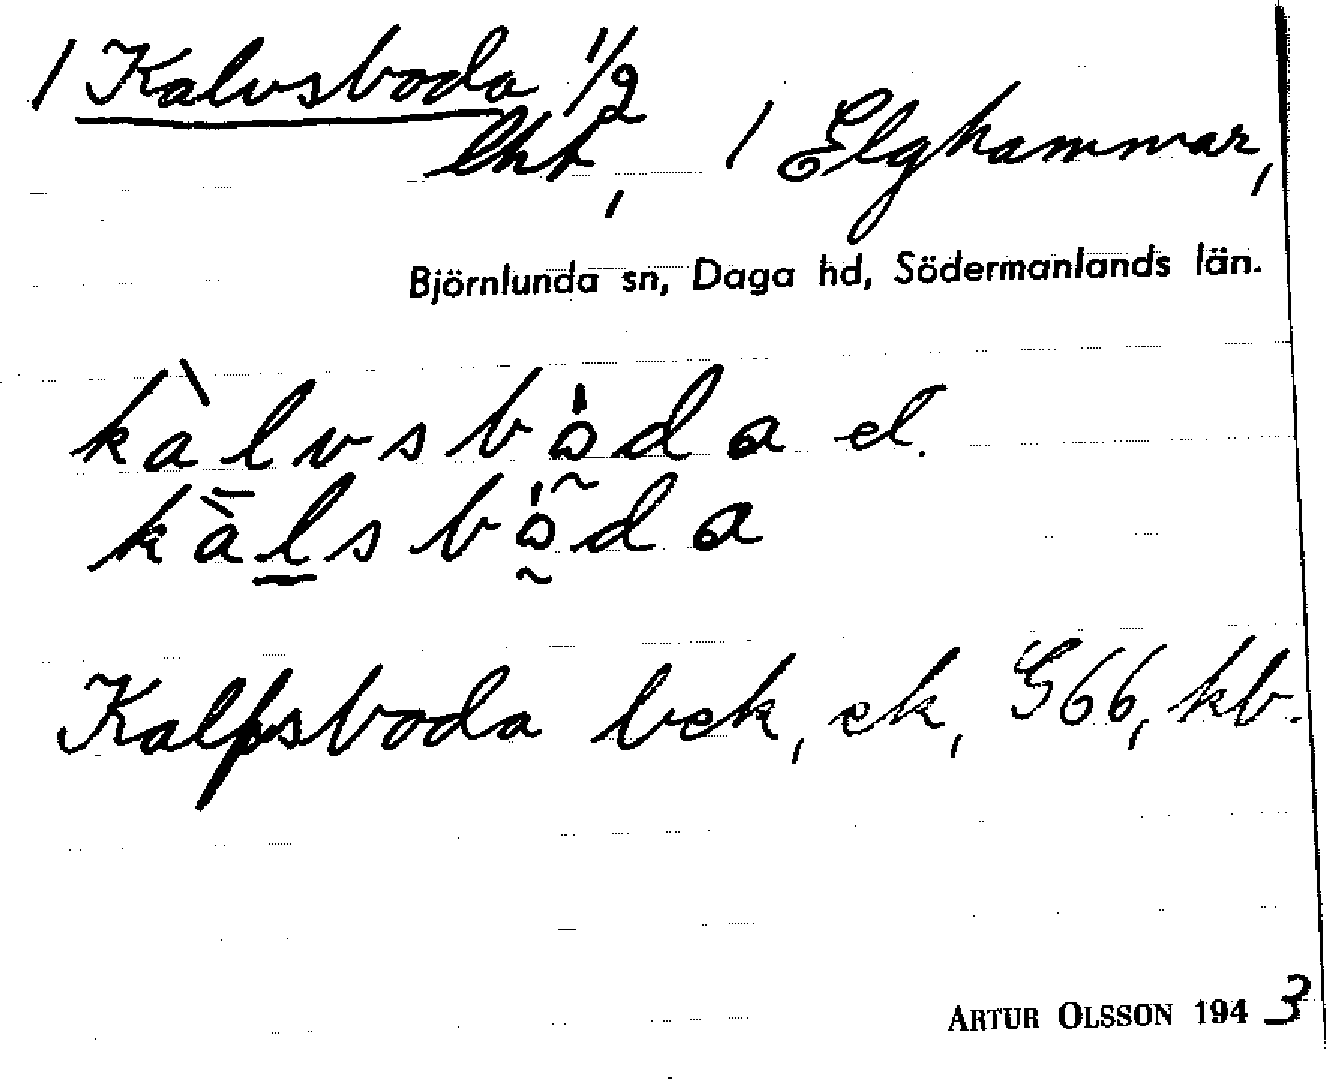 / Kalvsboda 1/2
lht, / Elghammar,
Björnlunda sn, Daga hd, Södermanlands län.
kàlvsbòda el.
kàlsbòda
Kalfsboda bek, ek, G66, kb.
ARTUR OLSSON 1943